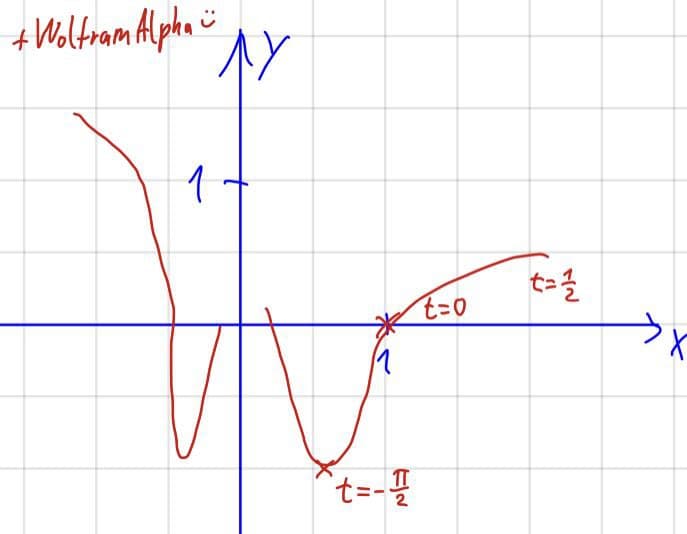 + WolframAlpha ü
y
1
t=0
t=½
x
1
t=-π/2